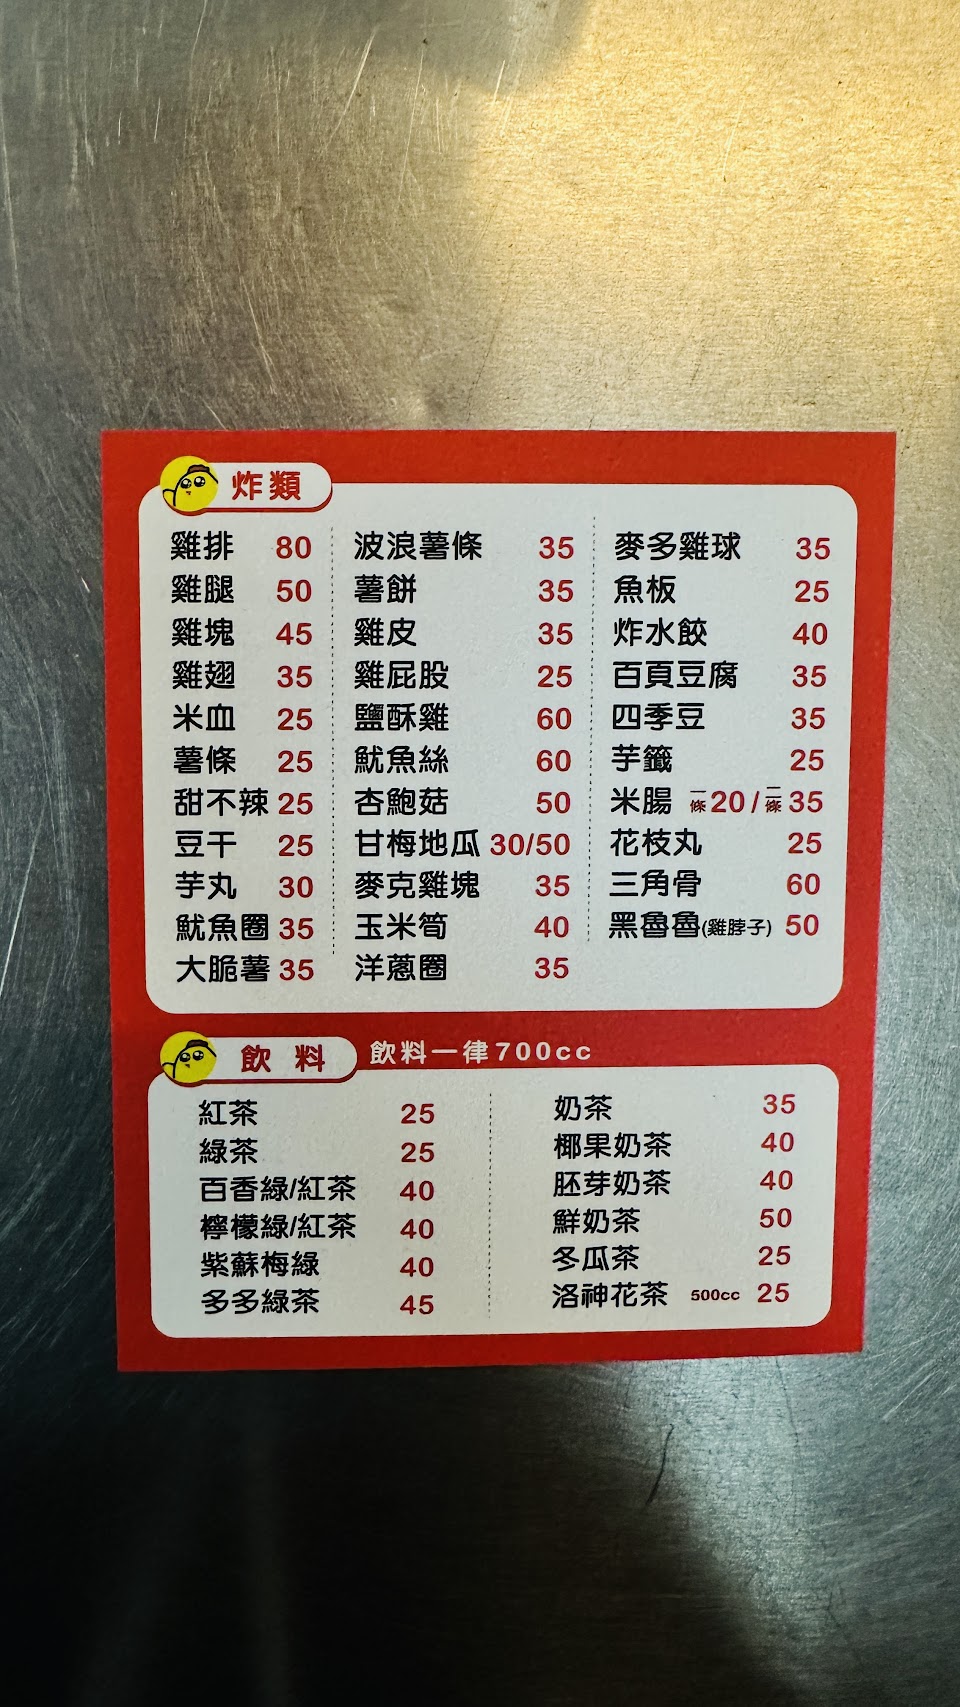 炸類
雞排 80
雞腿 50
雞塊 45
雞翅 35
米血 25
薯條 25
甜不辣 25
豆干 25
芋丸 30
魷魚圈 35
大脆薯 35
波浪薯條 35
薯餅 35
雞皮 35
雞屁股 25
鹽酥雞 60
魷魚絲 60
杏鮑菇 50
甘梅地瓜 30/50
麥克雞塊 35
玉米筍 40
洋蔥圈 35
麥多雞球 35
魚板 25
炸水餃 40
百頁豆腐 35
四季豆 35
芋籤 25
米腸 一條20/二條35
花枝丸 25
三角骨 60
黑魯魯(雞脖子) 50
飲料 飲料一律700cc
紅茶 25
綠茶 25
百香綠/紅茶 40
檸檬綠/紅茶 40
紫蘇梅綠 40
多多綠茶 45
奶茶 35
椰果奶茶 40
胚芽奶茶 40
鮮奶茶 50
冬瓜茶 25
洛神花茶 500cc 25